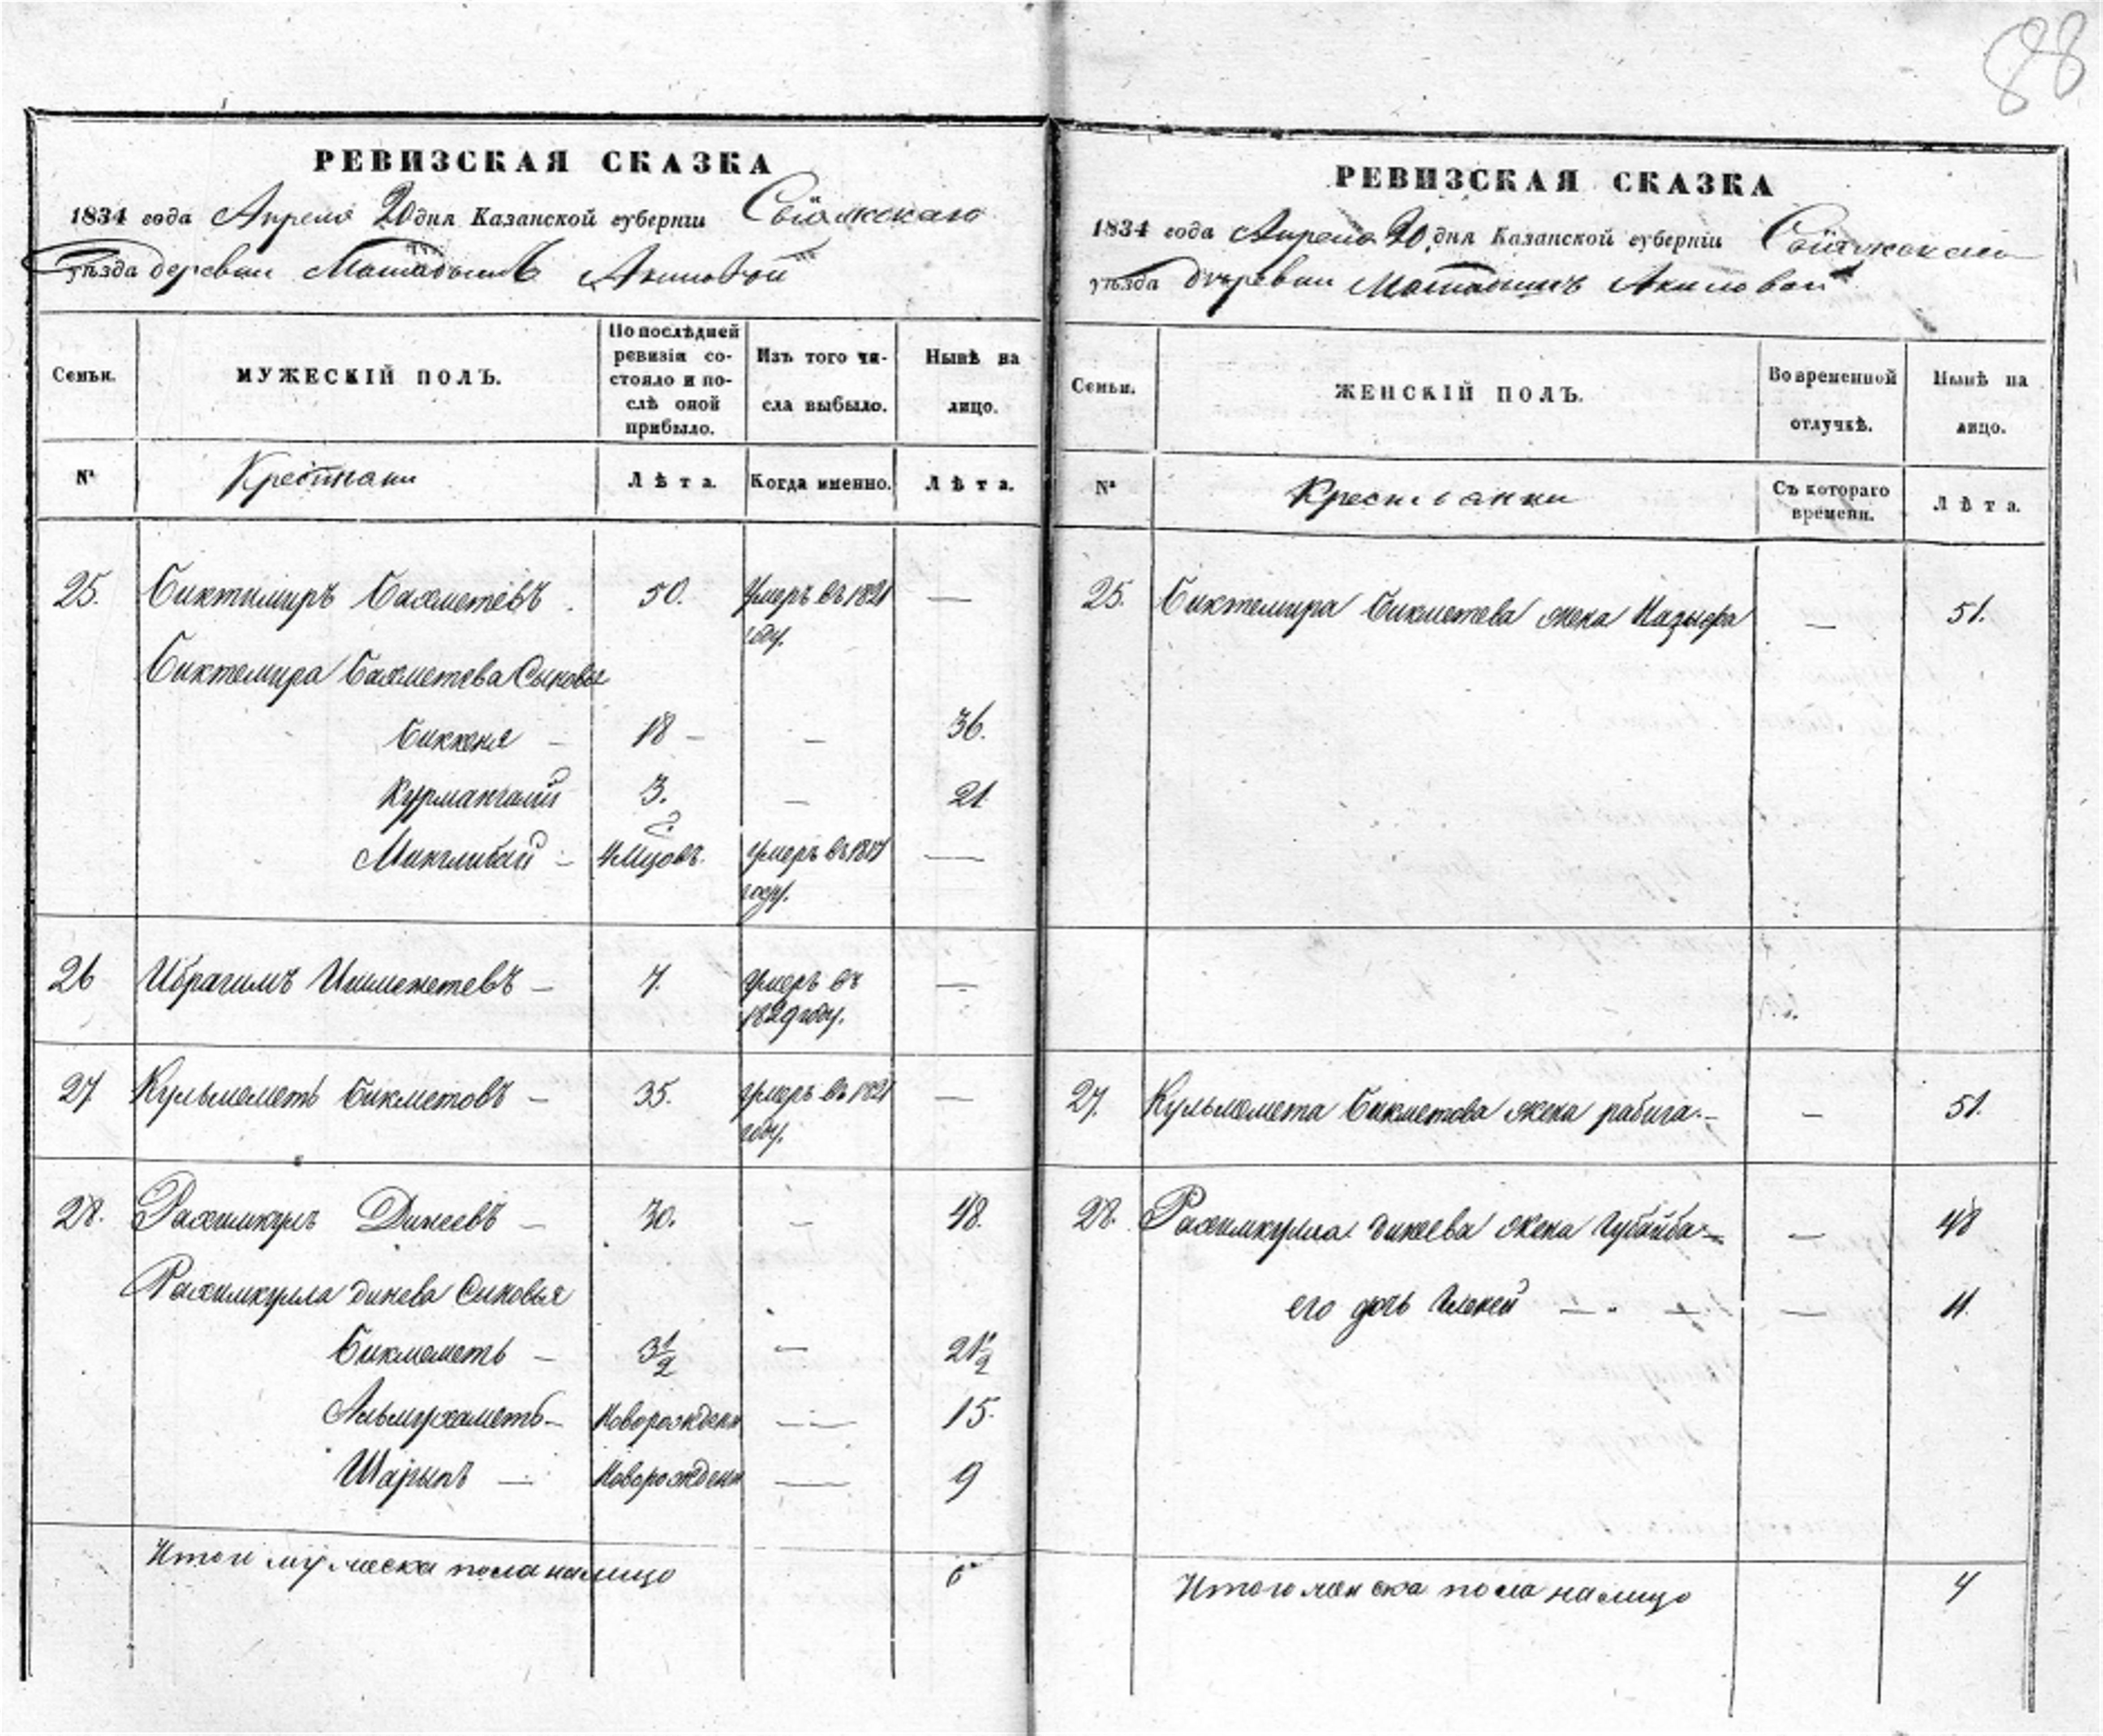 88
РЕВИЗСКАЯ СКАЗКА
1834 года Апреля 20 дня Казанской губернiи Свiяжскаго
уѣзда деревни Акиловой
Семьи.
МУЖЕСКIЙ ПОЛЪ.
По послѣдней ревизiи со-
стояло и по-
слѣ оной
прибыло.
Изъ того чи-
сла выбыло.
Нынѣ на
лицо.
№
Крестьяни
Лѣта.
Когда именно.
Лѣта.
25. Биктимиръ Бахметевъ 50. умеръ въ 1821 году. —
Биктемира Бахметева Сыновья
Биккеня — 18 — — 36.
Курмангалий 3. — 21
Минглибай — умеръ въ году. —
26 Ибрагимъ Ишменетевъ — 7. умеръ въ 1829 году. —
27 Кульмаметь Бикметовъ — 35. умеръ въ 1821 году. —
28. Рахимкулъ Динеевъ — 30. — 48.
Рахимкулла динева Сыновья
Бикмаметь — 3 1/2 — 21 1/2
Альмухаметь — Новорожденн — 15.
Шарыпъ — Новорожденн — 9
Итого мужеска пола налицо 6
РЕВИЗСКАЯ СКАЗКА
1834 года Апреля 20 дня Казанской губернiи Свiяжскаго
уѣзда деревни Акиловой
Семьи.
ЖЕНСКIЙ ПОЛЪ.
Во временной
отлучкѣ.
Нынѣ на
лицо.
№
Крестьянки
Съ котораго
времени.
Лѣта.
25. Биктемира Бикметева жена Назыфа — 51.
27. Кульмамета Бикметева жена рабига — — 51.
28. Рахимкулла динеева жена Губайба — — 48
его дочь — — 11.
Итого женска пола налицо 4